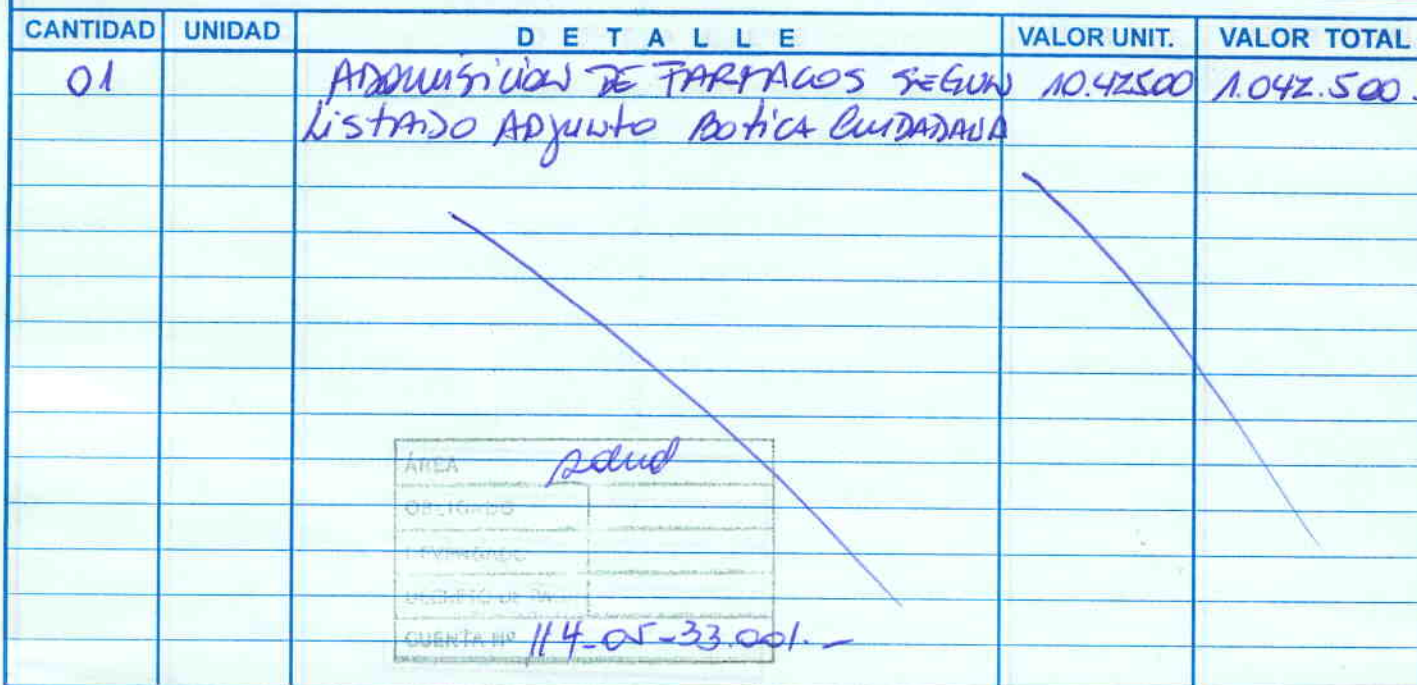 CANTIDAD UNIDAD DETALLE VALOR UNIT. VALOR TOTAL
01 ADQUISICION DE FARMACOS SEGUN 10.42500 1.042.500.
LISTADO ADJUNTO BOTICA CUIDADANA
ÁREA salud
OBLIGADO
DEVENGADO
DECRETO DE PAGO
CUENTA Nº 114-05-33.001.-